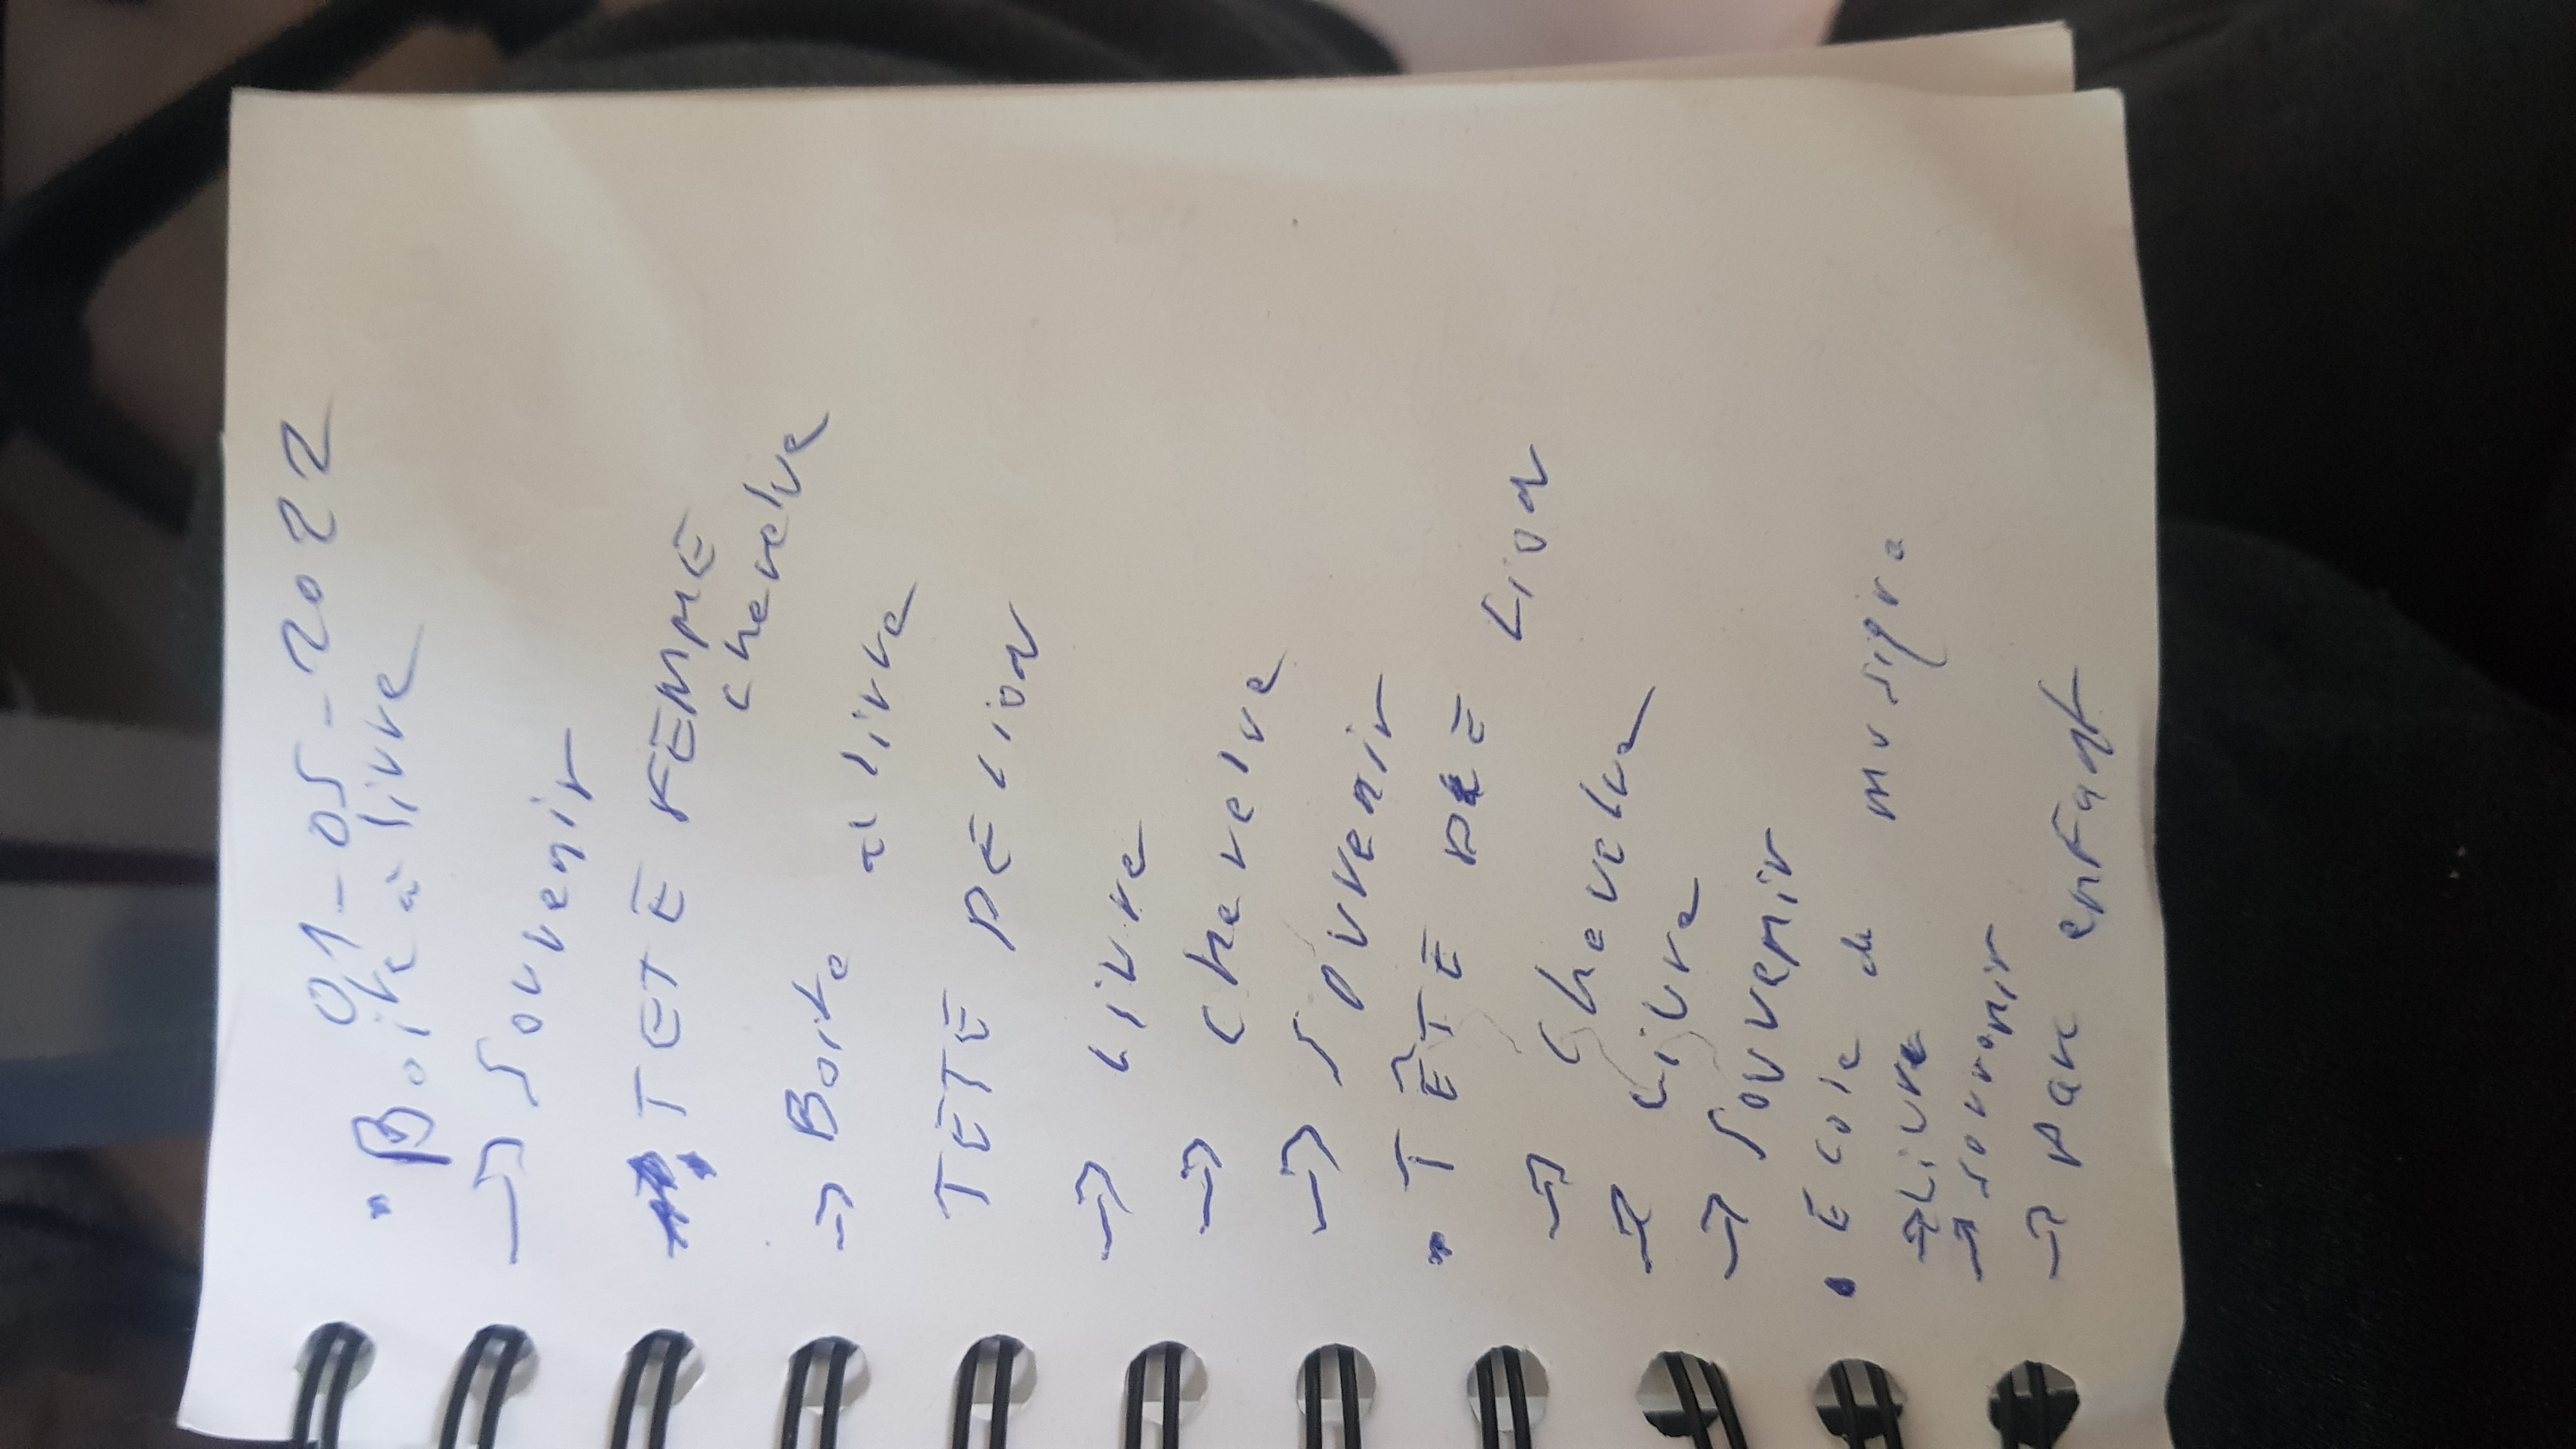 01-05-2022
• Boite à livre
→ souvenir
• TETE FEMME
chevelve
→ Boite a livre
TETE DE Lion
→ Livre
→ chevelve
→ souvenir
• TÊTE DE Lion
→ chevelve
→ Livre
→ souvenir
• Ecole de musiqve
→ Livre
→ souvenir
→ Parc enfant